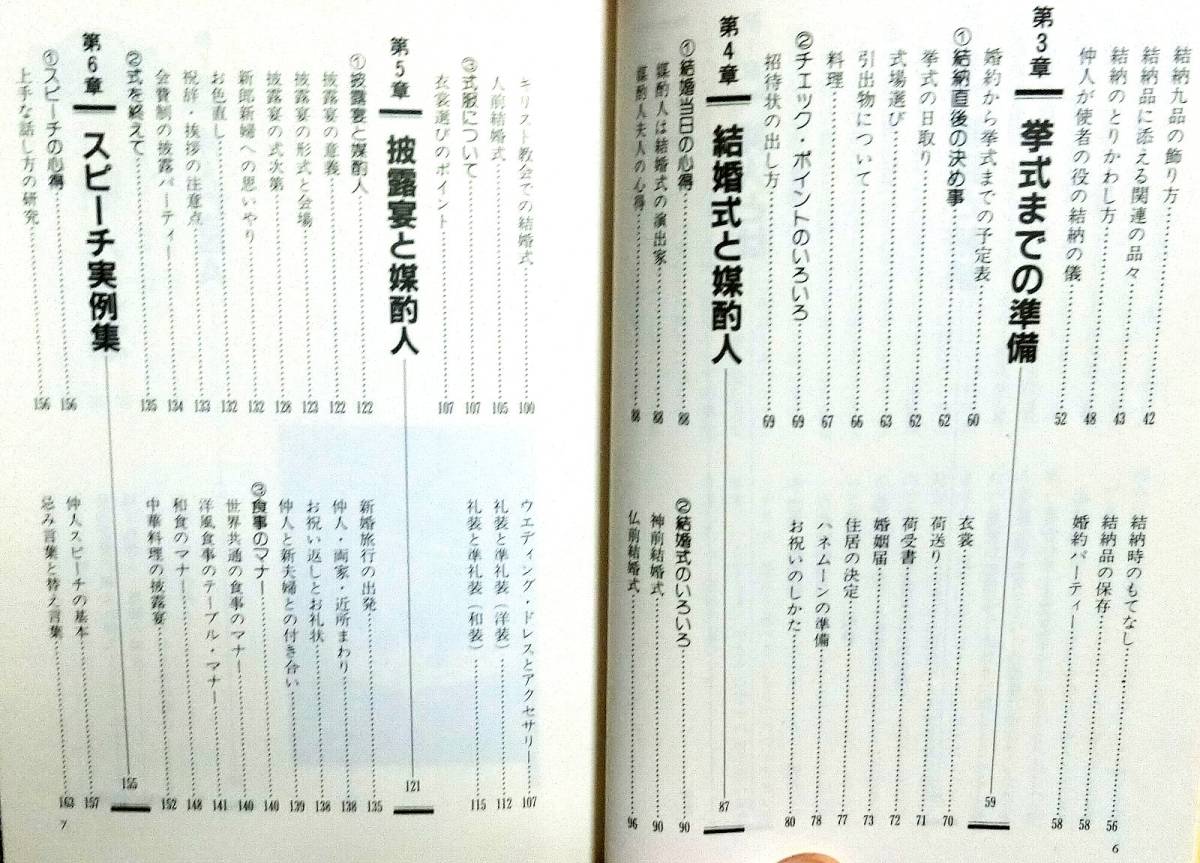 結納九品の飾り方……42
結納品に添える関連の品々……43
結納のとりかわし方……48
仲人が使者の役の結納の儀……52
結納時のもてなし……56
結納品の保存……58
婚約パーティー……58
第3章 挙式までの準備 59
婚約から挙式までの予定表……60
①結納直後の決め事……62
挙式の日取り……62
式場選び……63
引出物について……66
料理……67
②チェック・ポイントのいろいろ……69
招待状の出し方……69
衣裳……70
荷送り……71
荷受書……72
婚姻届……73
住居の決定……77
ハネムーンの準備……78
お祝いのしかた……80
第4章 結婚式と媒酌人 87
①結婚当日の心得……88
媒酌人は結婚式の演出家……88
媒酌人夫人の心得……88
②結婚式のいろいろ……90
神前結婚式……90
仏前結婚式……96
6
キリスト教会での結婚式……100
人前結婚式……105
③式服について……107
衣裳選びのポイント……107
ウエディング・ドレスとアクセサリー……107
礼装と準礼装(洋装)……112
礼装と準礼装(和装)……115
第5章 披露宴と媒酌人 121
①披露宴と媒酌人……122
披露宴の意義……122
披露宴の形式と会場……123
披露宴の式次第……128
新郎新婦への思いやり……132
お色直し……132
祝辞・挨拶の注意点……133
会費制の披露パーティー……134
②式を終えて……135
新婚旅行の出発……135
仲人・両家・近所まわり……138
お祝い返しとお礼状……138
仲人と新夫婦との付き合い……139
③食事のマナー……140
世界共通の食事のマナー……140
洋風食事のテーブル・マナー……141
和食のマナー……148
中華料理の披露宴……152
第6章 スピーチ実例集 155
①スピーチの心得……156
上手な話し方の研究……156
仲人スピーチの基本……157
忌み言葉と替え言葉……163
7